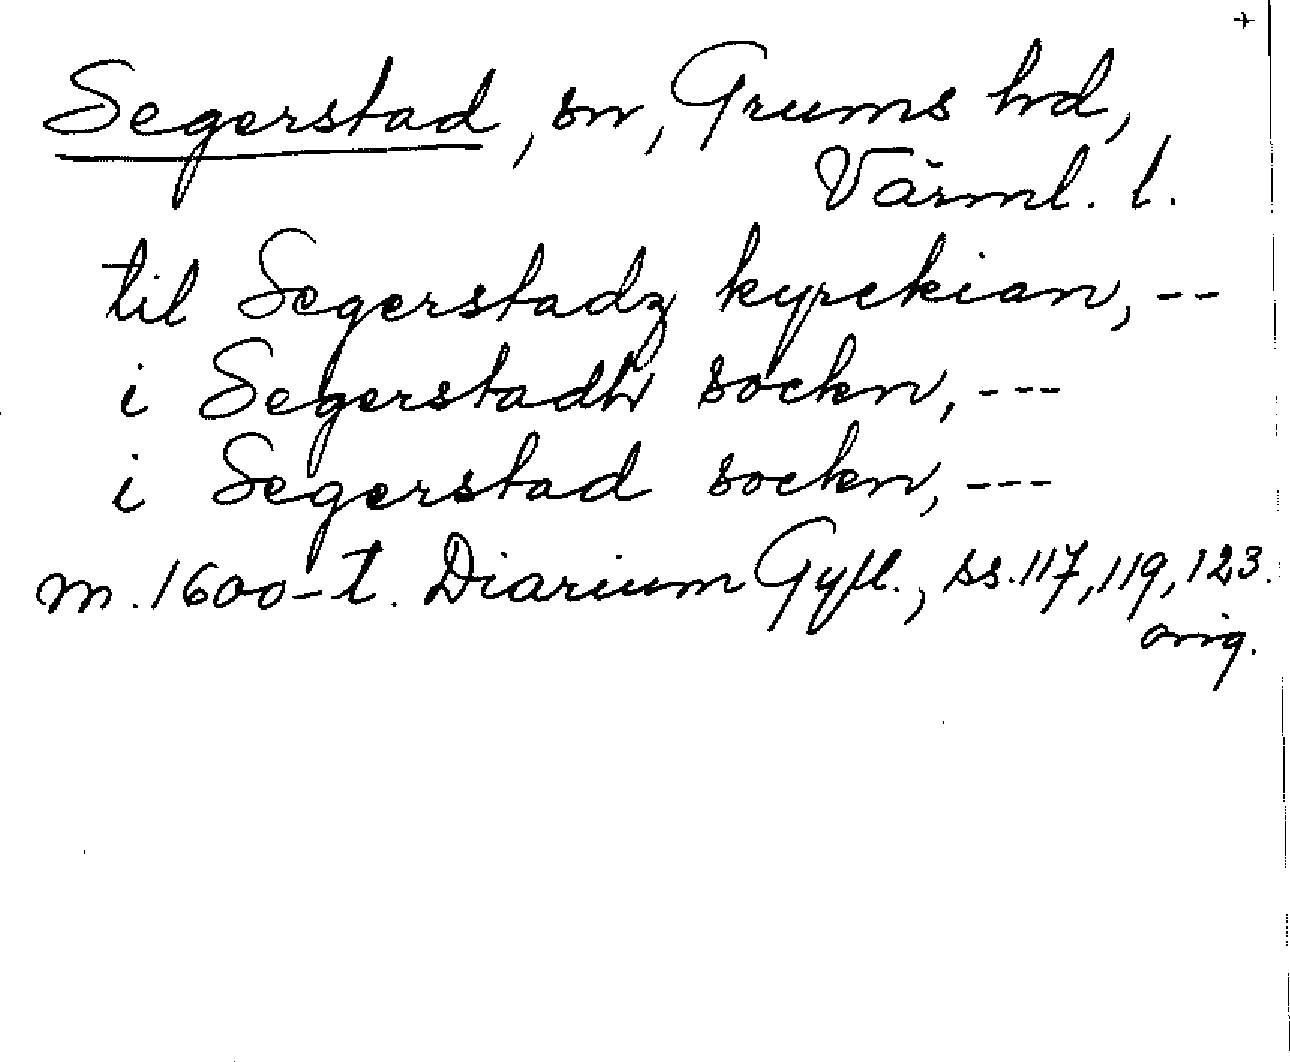 +
Segerstad, sn, Grums hd,
Värml. l.
til Segerstadz kyrckian, --
i Segerstadh sockn, ---
i Segerstad sockn, ---
m. 1600-t. Diarium Gyll., ss. 117, 119, 123.
orig.